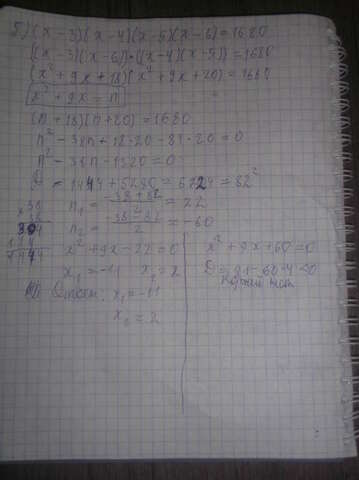 5) (x-3)(x-4)(x-5)(x-6)=1680
((x-3)(x-6))·((x-4)(x-5))=1680
(x²+9x+18)(x²+9x+20)=1680
x²+9x=n
(n+18)(n+20)=1680
n²-38n+18·20-84·20=0
n²-38n-1320=0
D=1444+5280=6724=82²
n₁=(-38+82)/2=22
n₂=(-38-82)/2=-60
x 38
38
304
114
1444
x²+9x-22=0
x₁=-11 x₂=2
Ответ: x₁=-11
x₂=2
x²+9x+60=0
D=81-60·4<0
Корней нет